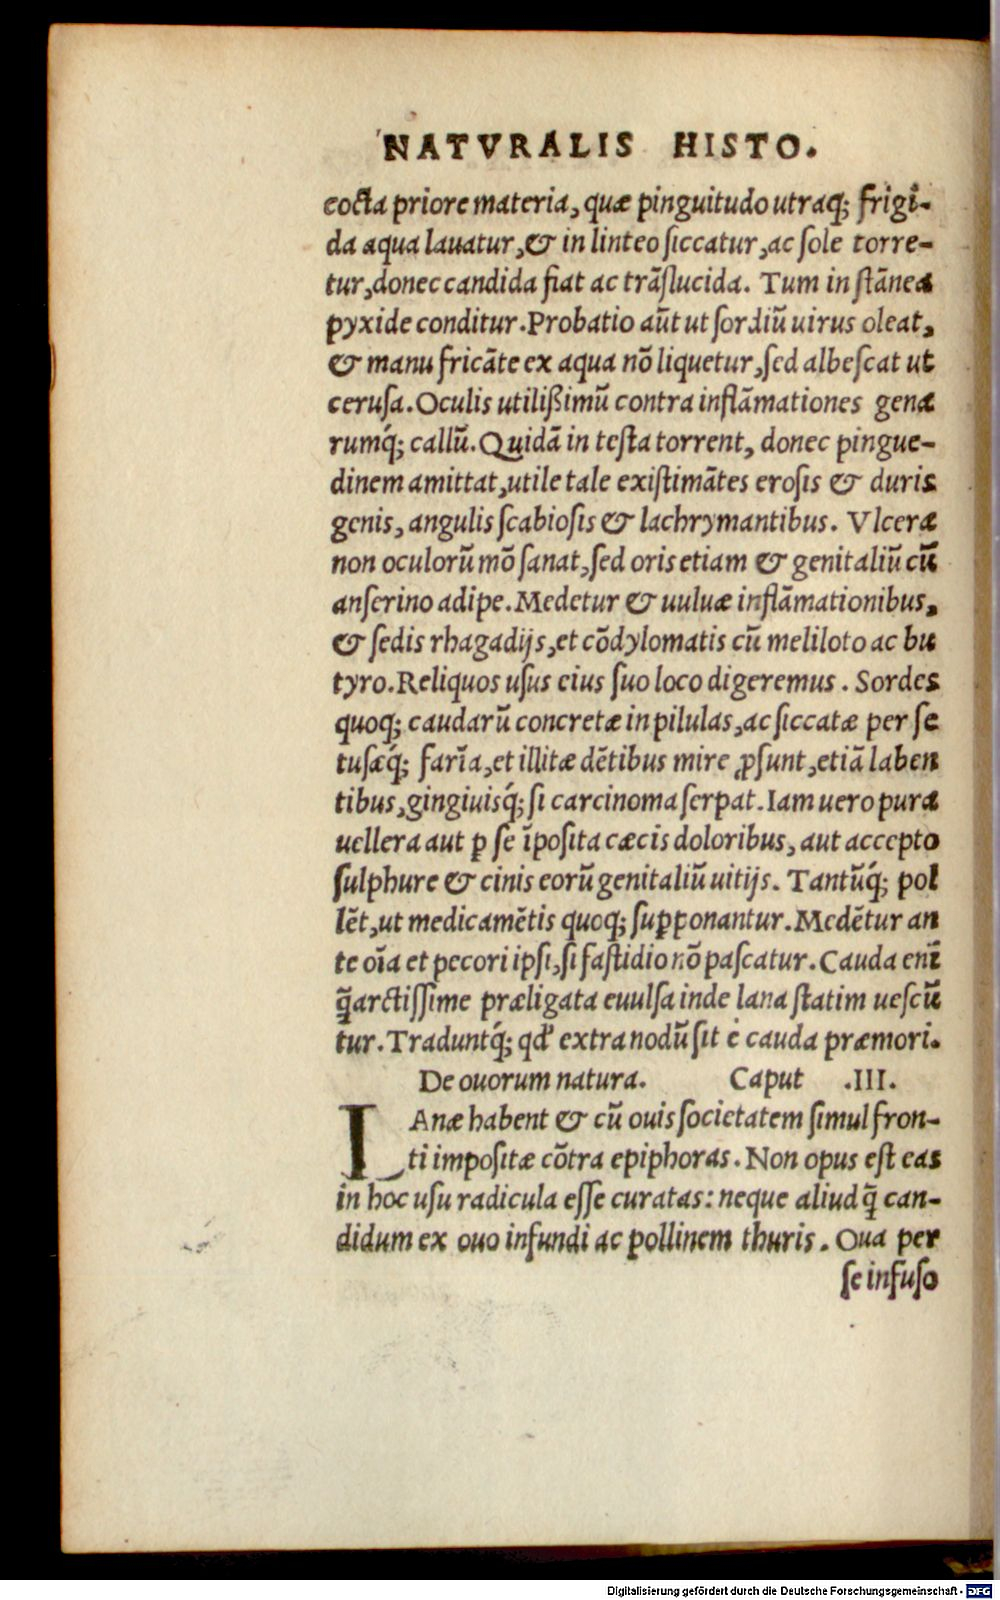 NATVRALIS HISTO.
cocta priore materia, quæ pinguitudo utraq; frigi-
da aqua lauatur, & in linteo ſiccatur, ac ſole torre-
tur, donec candida fiat ac trāſlucida. Tum in ſtānea
pyxide conditur. Probatio aūt ut ſordiū uirus oleat,
& manu fricāte ex aqua nō liquetur, ſed albeſcat ut
ceruſa. Oculis utilißimū contra inflāmationes genæ
rumq́; callū. Quidā in teſta torrent, donec pingue-
dinem amittat, utile tale exiſtimātes eroſis & duris
genis, angulis ſcabioſis & lachrymantibus. Vlcera
non oculorū mō ſanat, ſed oris etiam & genitaliū cū
anſerino adipe. Medetur & uuluæ inflāmationibus,
& ſedis rhagadijs, et cōdylomatis cū meliloto ac bu
tyro. Reliquos uſus eius ſuo loco digeremus. Sordes
quoq; caudarū concretæ in pilulas, ac ſiccatæ per ſe
tuſæq́; farīa, et illitæ dētibus mire ꝓſunt, etiā laben
tibus, gingiuisq́; ſi carcinoma ſerpat. Iam uero pura
uellera aut ꝑ ſe īpoſita cæcis doloribus, aut accepto
ſulphure & cinis eorū genitaliū uitijs. Tantūq́; pol
lēt, ut medicamētis quoq; ſuꝑponantur. Medētur an
te oīa et pecori ipſi, ſi faſtidio nō paſcatur. Cauda enī
q̄arctiſſime præligata euulſa inde lana ſtatim ueſcū
tur. Traduntq́; qd' extra nodū ſit è cauda præmori.
De ouorum natura. Caput .III.
LAnæ habent & cū ouis ſocietatem ſimul fron-
ti impoſitæ cōtra epiphoras. Non opus eſt eas
in hoc uſu radicula eſſe curatas: neque aliud q̄ can-
didum ex ouo infundi ac pollinem thuris. Oua per
ſe infuſo
Digitalisierung gefördert durch die Deutsche Forschungsgemeinschaft - DFG